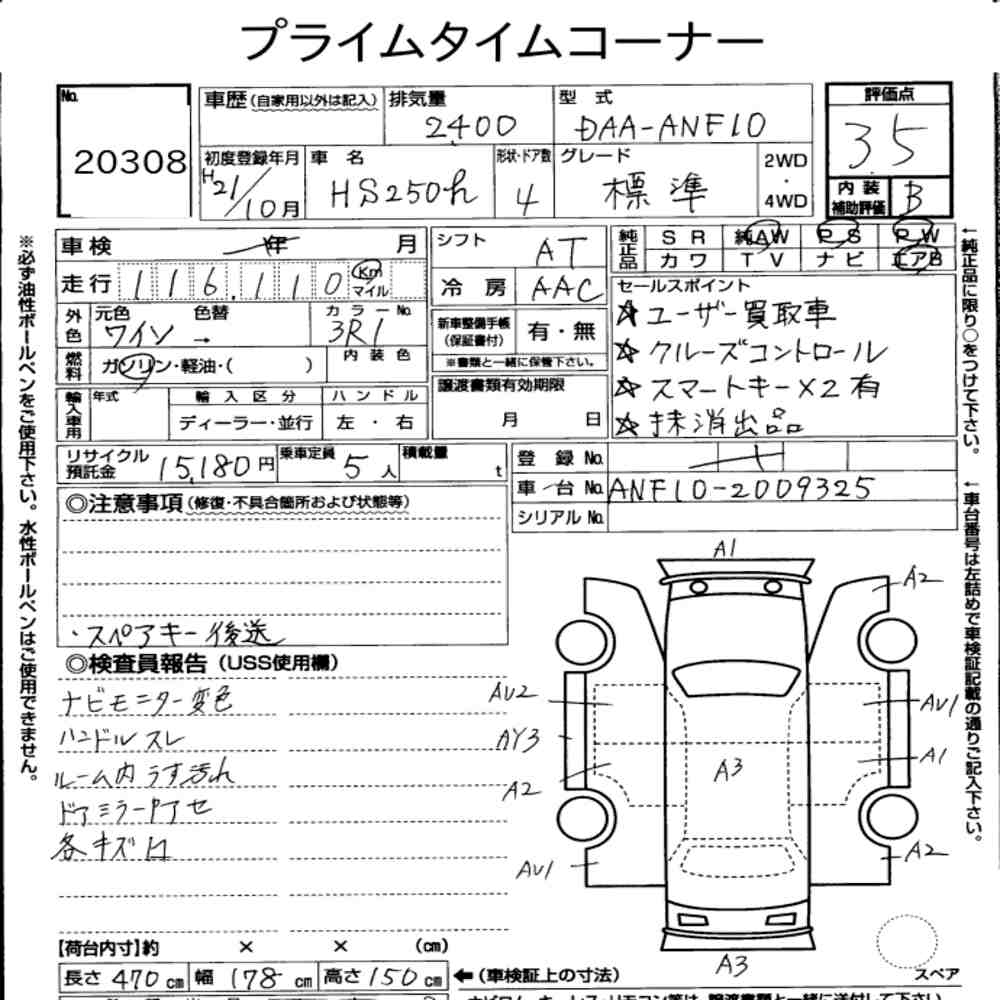 プライムタイムコーナー
No. 20308
車歴(自家用以外は記入)
排気量 2400
型式 DAA-ANF10
評価点 3.5
初度登録年月 H21/10月
車名 HS250h
形状・ドア数 4
グレード 標準
2WD・4WD
内装補助評価 B
車検 年 月
シフト AT
純正品 SR 純AW PS PW
カワ TV ナビ エアB
走行 116,110 Km マイル
冷房 AAC
セールスポイント
☆ユーザー買取車
☆クルーズコントロール
☆スマートキー×2有
☆抹消出品
外色 元色 ワイン → 色替
カラーNo. 3R1
新車整備手帳(保証書付) 有・無
※書類と一緒に保管下さい。
燃料 ガソリン・軽油・( )
内装色
譲渡書類有効期限 月 日
輸入車用 年式
輸入区分 ディーラー・並行
ハンドル 左・右
リサイクル預託金 15,180円
乗車定員 5人
積載量 t
登録No.
車台No. ANF10-2009325
シリアルNo.
◎注意事項(修復・不具合箇所および状態等)
・スペアキー後送
◎検査員報告(USS使用欄)
ナビモニター変色
ハンドルスレ
ルーム内うす汚れ
ドアミラーアセ
各キズ凹
A1
A2
AU2
AU1
AY3
A1
A3
A2
AU1
A2
A3
スペア
【荷台内寸】約 × × (cm)
長さ 470cm 幅 178cm 高さ 150cm
←(車検証上の寸法)
※必ず油性ボールペンをご使用下さい。水性ボールペンはご使用できません。
←純正品に限り○をつけて下さい。
←車台番号は左詰めで車検証記載の通りご記入下さい。